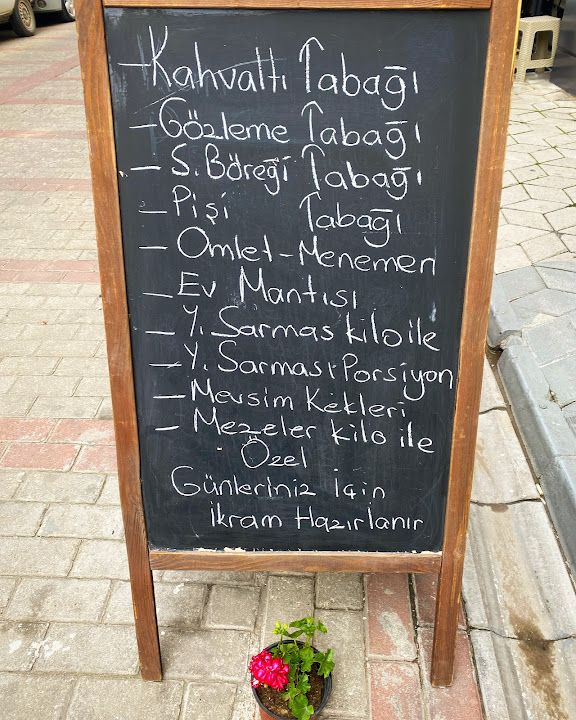 - Kahvaltı Tabağı
- Gözleme Tabağı
- S. Böreği Tabağı
- Pişi Tabağı
- Omlet - Menemen
- Ev Mantısı
- Y. Sarmas kilo ile
- Y. Sarması Porsiyon
- Mevsim Kekleri
- Mezeler kilo ile
Özel
Günleriniz İçin
İkram Hazırlanır